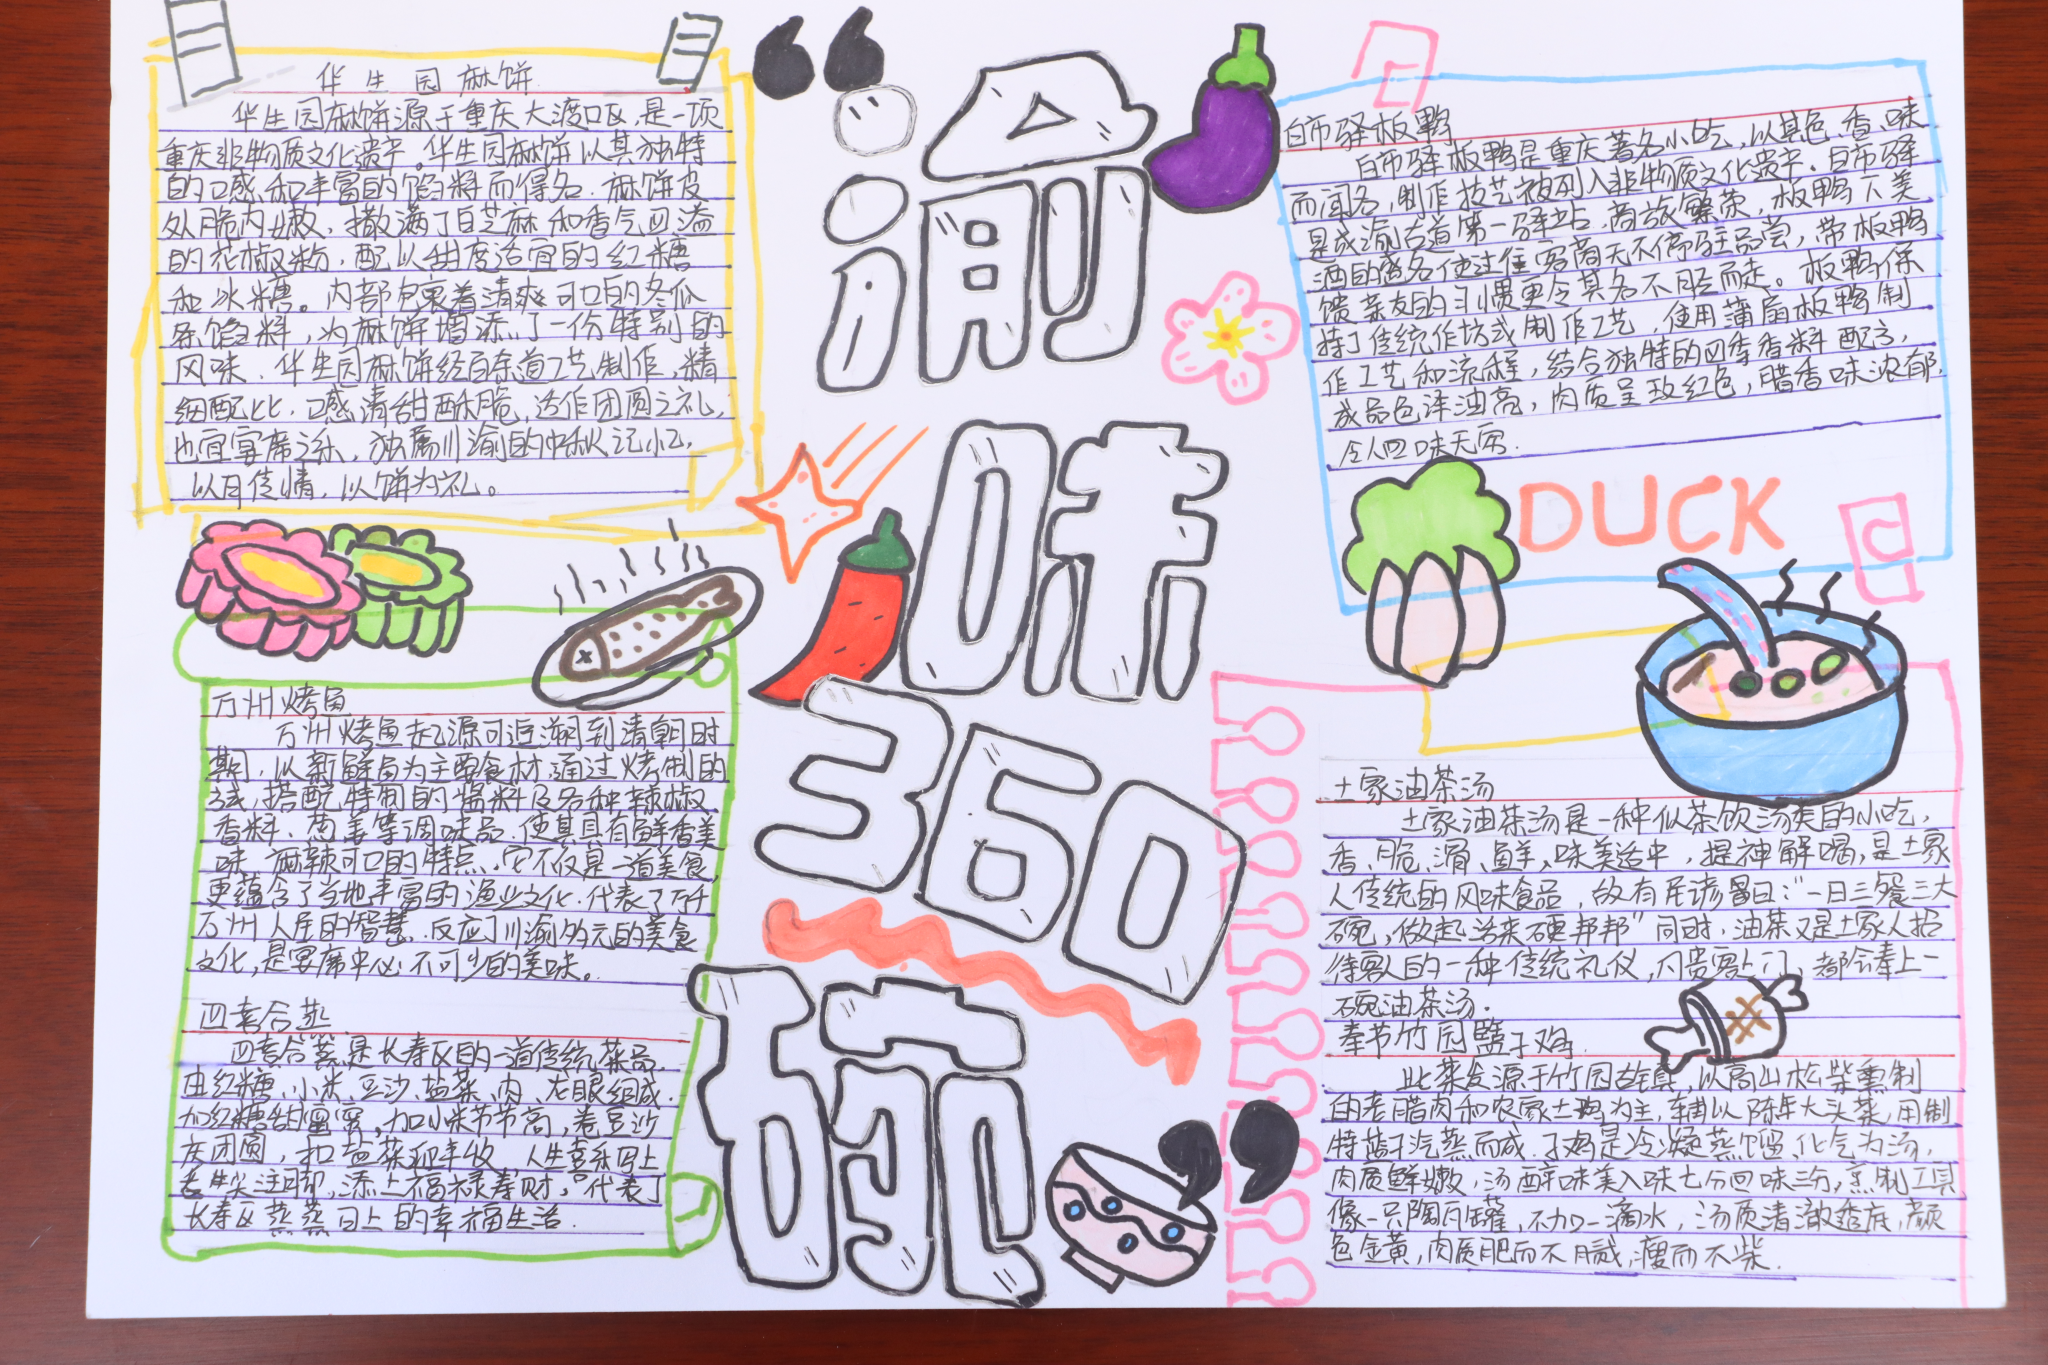 华生园麻饼
华生园麻饼源于重庆大渡口区,是一项
重庆非物质文化遗产。华生园麻饼以其独特
的口感和丰富的馅料而得名.麻饼皮
外脆内嫩,撒满了白芝麻和香气四溢
的花椒粉,配以甜度适宜的红糖
和冰糖。内部包裹着清爽可口的冬瓜
条馅料,为麻饼增添了一份特别的
风味.华生园麻饼经百余道工艺制作,精
细配比.口感清甜酥脆,达作团圆之礼,
也宜宴席之乐,独属川渝的中秋记忆,
以月传情,以饼为礼。
万州烤鱼
万州烤鱼起源可追溯到清朝时
期,以新鲜鱼为主要食材,通过烤制的
方式,搭配特制的酱料及各种辣椒
香料、葱姜等调味品.使其具有鲜香美
味、麻辣可口的特点.它不仅是一道美食,
更蕴含了当地丰富的渔业文化.代表了万千
万州人民的智慧.反应了川渝多元的美食
文化,是宴席中必不可少的美味。
四套合蒸
四套合蒸是长寿区的一道传统菜品.
由红糖、小米、豆沙、盐菜、肉、龙眼组成.
加红糖甜蜜蜜,加小米节节高,卷豆沙
庆团圆,扣盐菜迎丰收,人生喜乐写上
添上福禄寿财,“代表了
长寿区蒸蒸日上的幸福生活.
“渝
味
360
碗”
白市驿板鸭
白市驿板鸭是重庆著名小吃,以其色、香、味
而闻名,制作技艺被列入非物质文化遗产.白市驿
是成渝古道第一驿站,商旅繁荣,板鸭下美
酒的盛名使过往客商无不停驻品尝,带板鸭
馈亲友的习惯更令其名不胫而走。板鸭保
持了传统作坊式制作工艺,使用蒲扇板鸭制
作工艺和流程,结合独特的四季香料配方,
成品色泽油亮,肉质呈玫红色,腊香味浓郁,
令人回味无穷.
DUCK
土家油茶汤
土家油茶汤是一种似茶饮汤类的小吃,
香、脆、滑、鲜,味美适中,提神解喝,是土家
人传统的风味食品,故有民谚曰:“一日三餐三大
碗,做起活来硬邦邦”同时,油茶又是土家人招
待客人的一种传统礼仪,凡贵客上门,都会奉上一
碗油茶汤.
奉节竹园盬子鸡
此菜发源于竹园古镇,以高山松柴熏制
的老腊肉和农家土鸡为主,辅以陈年大头菜,用制
特盬子汽蒸而成.子鸡是冷凝蒸馏,化气为汤,
肉质鲜嫩,汤醇味美入味七分回味三分,烹制工具
像一只陶瓦罐,不加一滴水,汤质清澈透底,颜
色金黄,肉质肥而不腻,瘦而不柴.